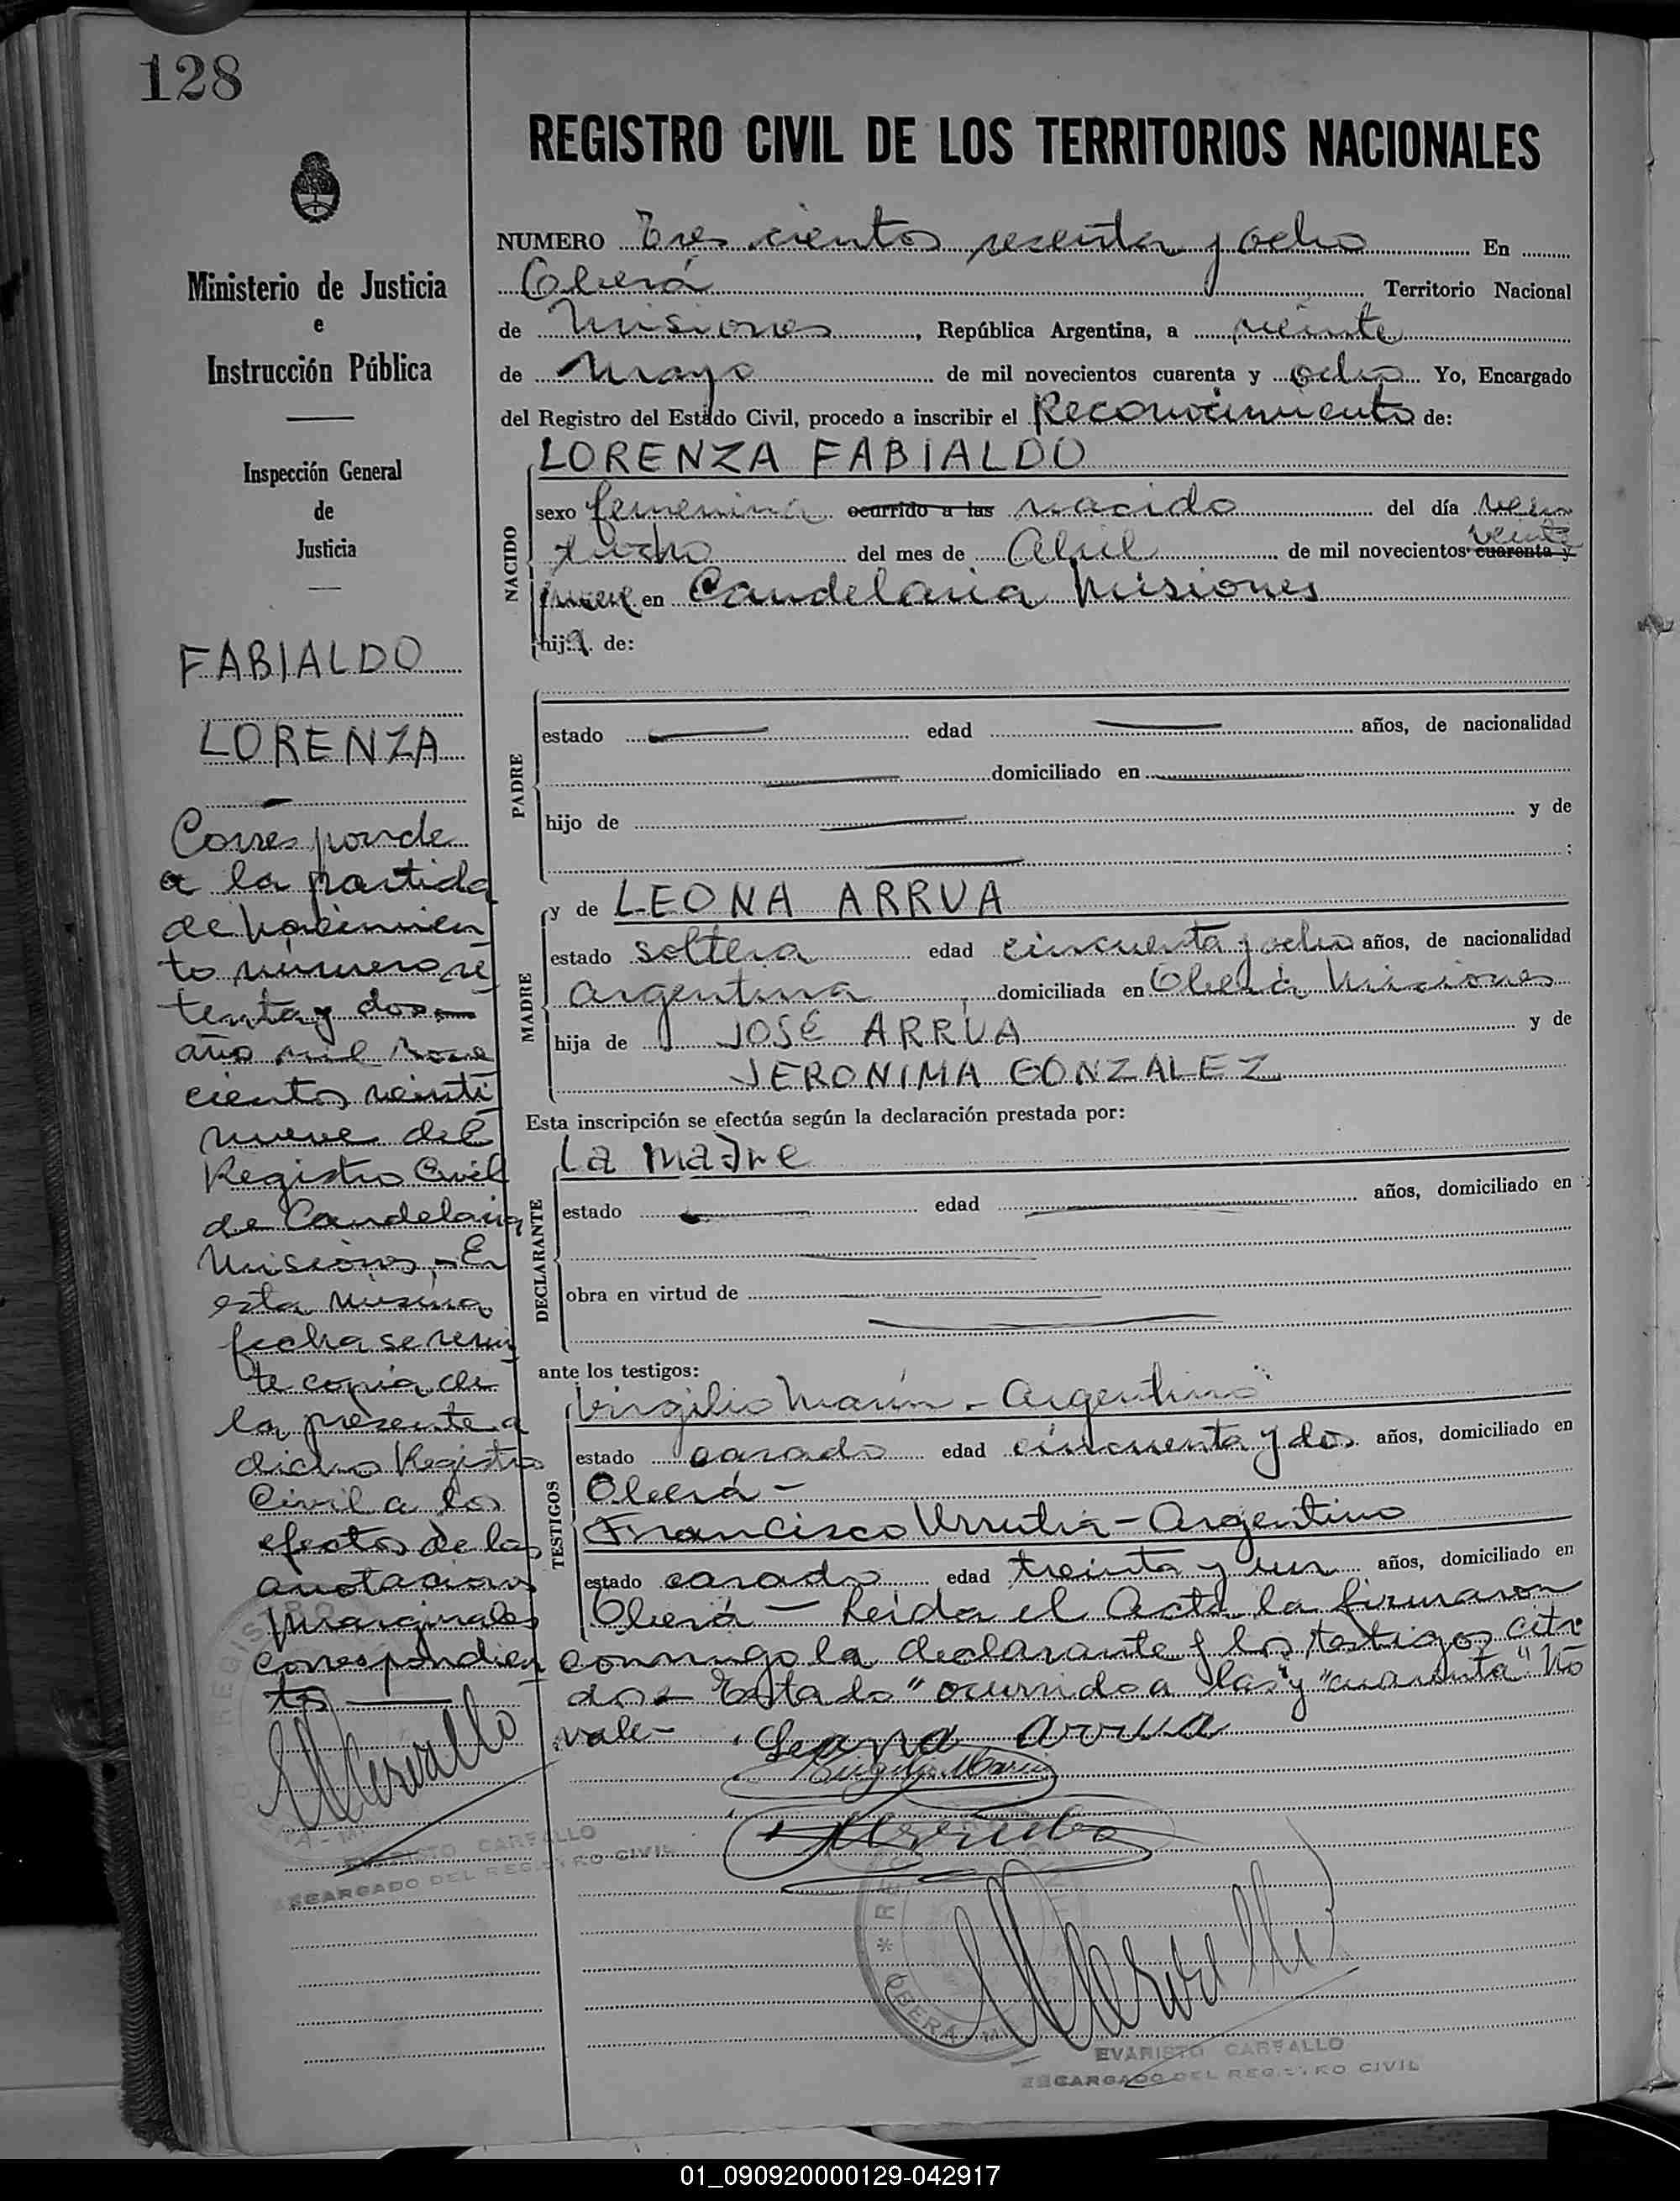 128
REGISTRO CIVIL DE LOS TERRITORIOS NACIONALES
Ministerio de Justicia
e
Instrucción Pública
Inspección General
de
Justicia
FABIALDO
LORENZA
Corresponde
a la partida
de Nacimien
to número se
tenta y dos
año mil nove
cientos veinti
nueve del
Registro Civil
de Candelaria
Misiones - En
esta misma
fecha se remi
te copia de
la presente a
dicho Registro
Civil a los
efectos de las
anotaciones
marginales
correspondien
tes
EVARISTO CARVALLO
ENCARGADO DEL REGISTRO CIVIL
NUMERO Tres cientos sesenta y ocho En
Oberá Territorio Nacional
de Misiones, República Argentina, a veinte
de Mayo de mil novecientos cuarenta y ocho Yo, Encargado
del Registro del Estado Civil, procedo a inscribir el Reconocimiento de:
LORENZA FABIALDO
NACIDO
sexo femenina ocurrido a las nacido del día vein
tiocho del mes de Abril de mil novecientos cuarenta y veinti
nueve en Candelaria Misiones
hija de:
PADRE
estado edad años, de nacionalidad
domiciliado en
hijo de y de
;
MADRE
y de LEONA ARRUA
estado soltera edad cincuenta y ocho años, de nacionalidad
argentina, domiciliada en Oberá Misiones
hija de JOSÉ ARRÚA y de
JERONIMA GONZALEZ
Esta inscripción se efectúa según la declaración prestada por:
DECLARANTE
La madre
estado edad años, domiciliado en
obra en virtud de
ante los testigos:
TESTIGOS
Virgilio Marin - Argentino
estado casado edad cincuenta y dos años, domiciliado en
Oberá -
Francisco Urrutia - Argentino
estado casado edad treinta y un años, domiciliado en
Oberá - Leida el Acta la firmaron
conmigo la declarante y los testigos cita
dos - Estado "ocurrido a las" y "cuarenta" No
vale -
Leona arrua
EVARISTO CARVALLO
ENCARGADO DEL REGISTRO CIVIL
01_090920000129-042917